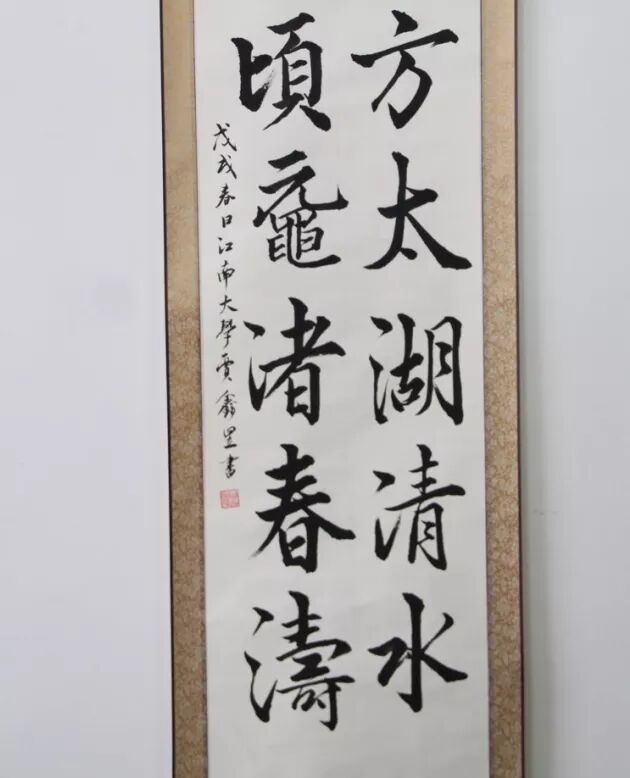 方太湖清水
頃黿渚春濤
戊戌春日江南大學賈鑫昱書